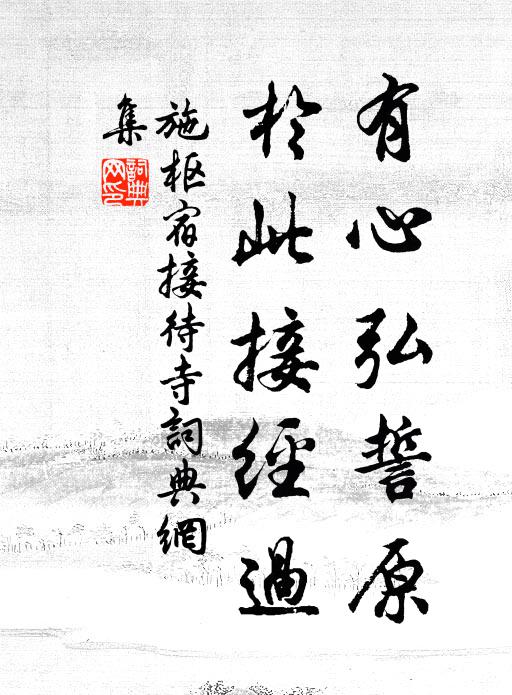 有心弘誓原
於此接經過
施枢宿接待寺詞典網
集
詞典
网印